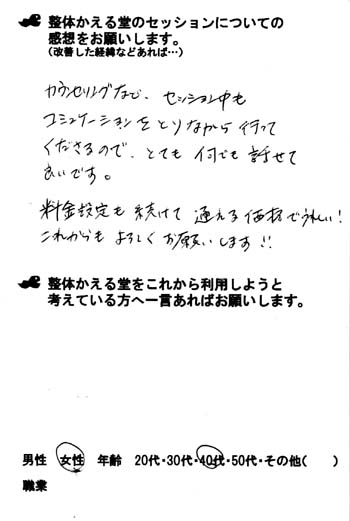 整体かえる堂のセッションについての
感想をお願いします。
（改善した経緯などあれば…）
カウンセリングなど、セッション中も
コミュニケーションをとりながら行って
くださるので、とても何でも話せて
良いです。
料金設定も続けて通える価格でうれしい!
これからもよろしくお願いします!!
整体かえる堂をこれから利用しようと
考えている方へ一言あればお願いします。
男性 女性 年齢 20代・30代・40代・50代・その他( )
職業